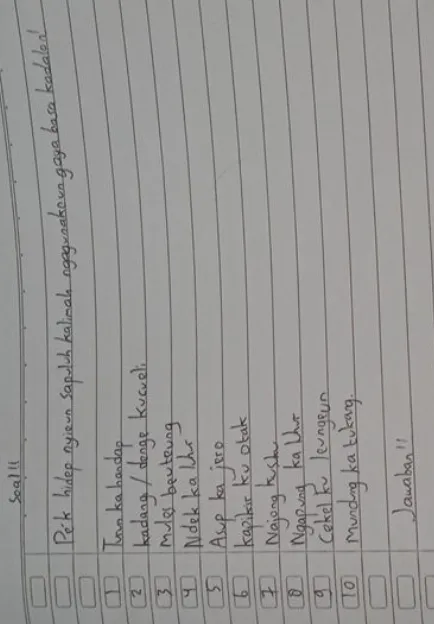 Soal!!
Pék hidep nyieun sapuluh kalimah ngagunakeun gaya basa kadalon!
1 Turun ka handap
2 kadang / denge kuceuli
3 Mules beuteung
4 Ndek ka luhur
5 Asup ka jero
6 kapikir ku otak
7 Najong kusuku
8 Ngapung ka luhur
9 Cekel ku leungeun
10 Mundur ka tukang.
Jawaban!!